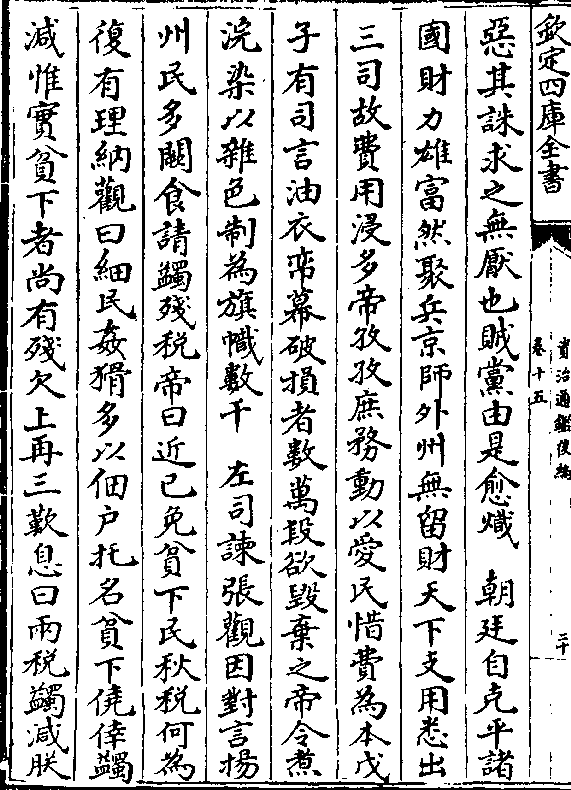 欽定四庫全書
資治通鑑後編
卷十五
三十
惡其誅求之無厭也賊黨由是愈熾　朝廷自克平諸
國財力雄富然聚兵京師外州無留財天下支用悉出
三司故費用浸多帝孜孜庶務動以愛民惜費為本戊
子有司言油衣帟幕破損者數萬段欲毀棄之帝令煮
浣染以雜色制為旗幟數千　左司諫張觀因對言揚
州民多闕食請蠲殘税帝曰近已免貧下民秋税何為
復有理納觀曰細民姦猾多以佃户托名貧下僥倖蠲
減惟實貧下者尚有殘欠上再三歎息曰兩税蠲減朕